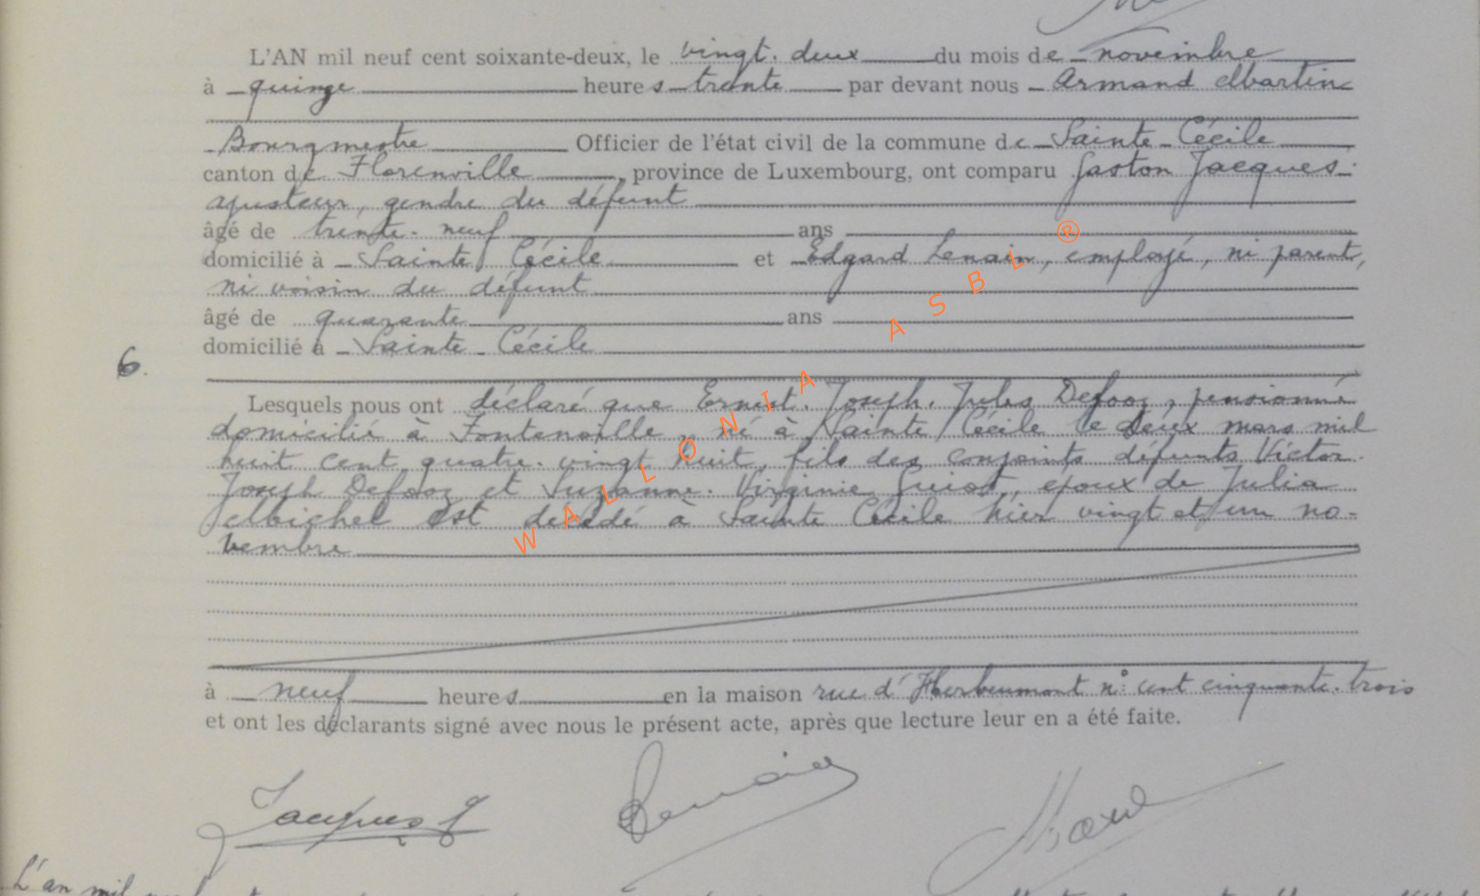 L'AN mil neuf cent soixante-deux, le vingt-deux du mois de novembre
à quinze heures trente par devant nous Armand Martin
Bourgmestre Officier de l'état civil de la commune de Sainte-Cécile
canton de Florenville, province de Luxembourg, ont comparu Gaston Jacques
ajusteur, gendre du défunt
âgé de trente-neuf ans
domicilié à Sainte Cécile et Edgard Lenain, employé, ni parent,
ni voisin du défunt
âgé de quarante ans
domicilié à Sainte-Cécile
6.
Lesquels nous ont déclaré que Ernest. Joseph. Jules Defooz, pensionné
domicilié à Fontenoille, né à Sainte Cécile le deux mars mil
huit cent quatre-vingt huit, fils des conjoints défunts Victor-
Joseph Defooz et Suzanne-Virginie Guiot, époux de Julia
Michel est décédé à Sainte Cécile hier vingt et un no-
vembre
à neuf heures en la maison rue d'Herbeumont n° cent cinquante-trois
et ont les déclarants signé avec nous le présent acte, après que lecture leur en a été faite.
Jacques G
Lenain
L'an mil
WALLONIA ASBL ®